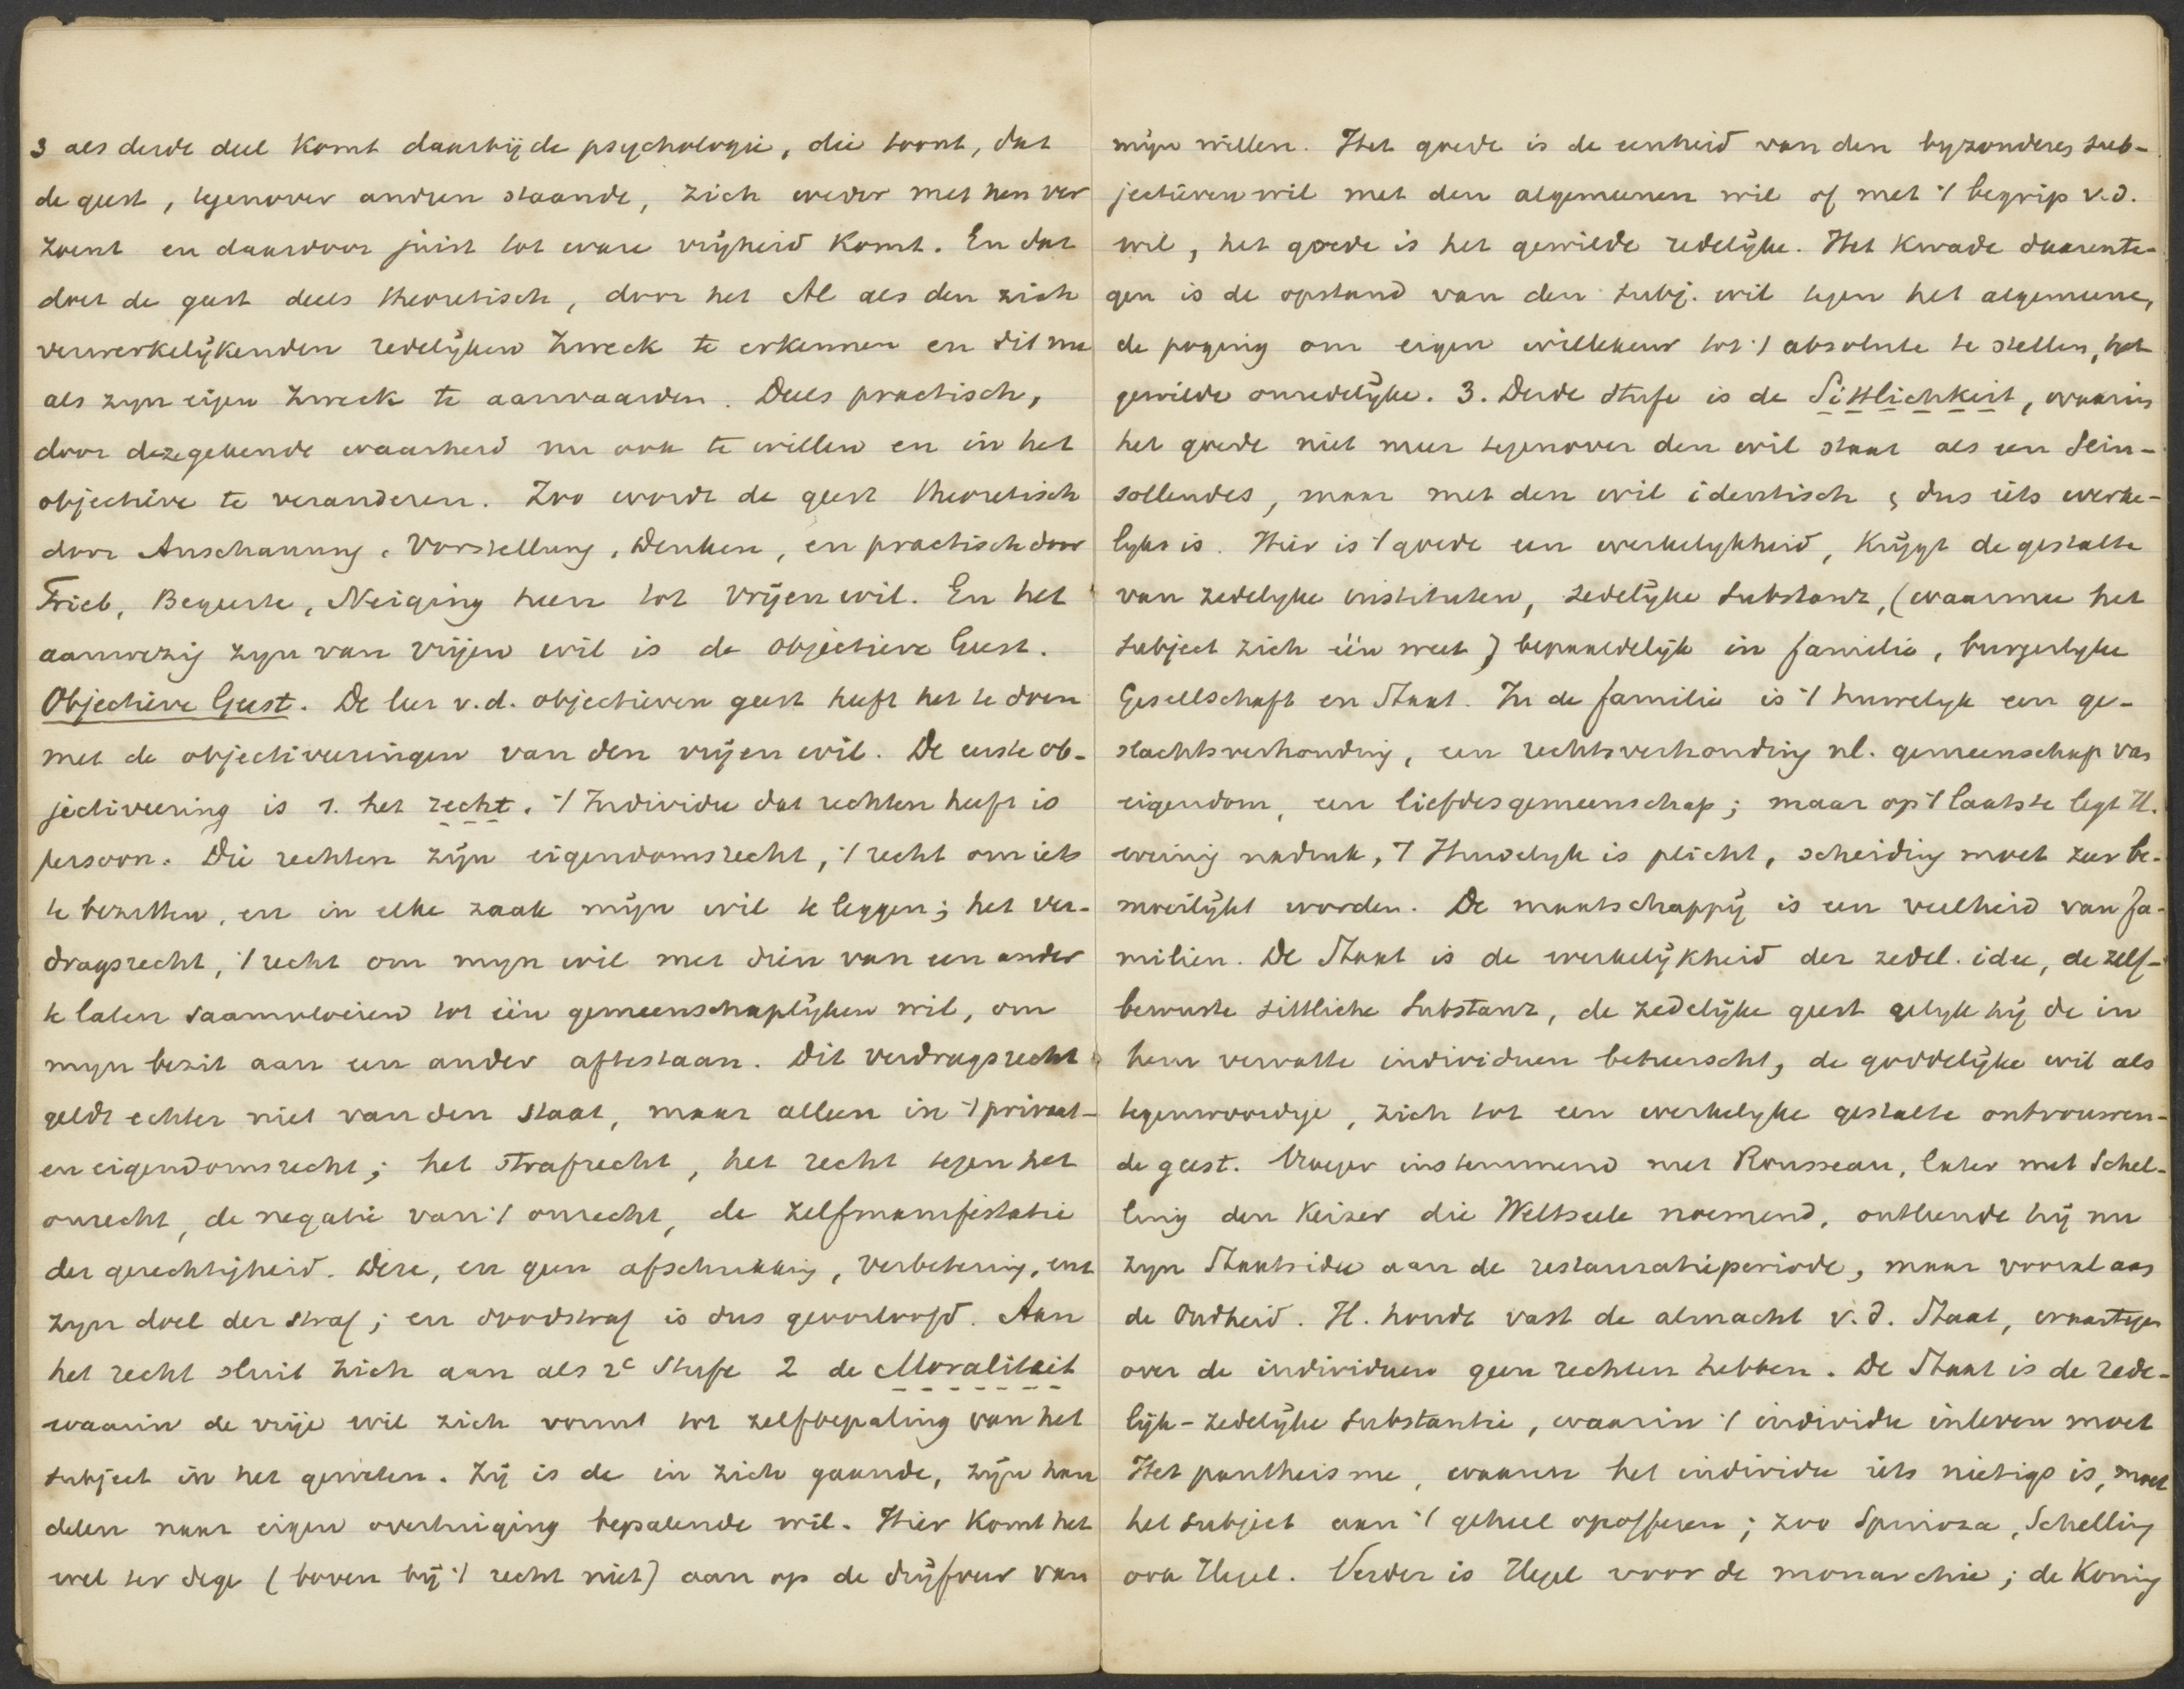 3 als derde deel komt daarbij de psychologie, die toont, dat
de geest, tegenover andren staande, zich weder met hen ver
zoent en daardoor juist tot ware vrijheid komt. En dat
doet de geest deels theoretisch, door het Al als den zich
verwerkelijkenden redelijken Zweck te erkennen en dit nu
als zyn eigen Zweck te aanvaarden. Deels practisch,
door deze gekende waarheid nu ook te willen en in het
objectieve te veranderen. Zoo wordt de geest theoretisch
door Anschauung, Vorstellung, Denken, en practisch door
Trieb, Begeerte, Neiging heen tot vrijen wil. En het
aanwezig zyn van vrijen wil is de objectieve Geest.
Objectieve Geest. De leer v.d. objectieven geest heeft het te doen
met de objectiveeringen van den vrijen wil. De eerste ob-
jectiveering is 1. het recht. 't Individu dat rechten heeft is
persoon. Die rechten zijn eigendomsrecht, 't recht om iets
te bezitten, en in elke zaak mijn wil te leggen; het ver-
dragsrecht, 't recht om myn wil met dien van een ander
te laten saamvloeien tot één gemeenschaplijken wil, om
myn bezit aan een ander aftestaan. Dit verdragsrecht
geldt echter niet van den staat, maar alleen in 't privaat-
en eigendomsrecht; het strafrecht, het recht tegen het
onrecht, de negatie van 't onrecht, de zelfmanifestatie
der gerechtigheid. Deze, en geen afschrikking, verbetering, enz
zyn doel der straf; en doodstraf is dus geoorloofd. Aan
het recht sluit zich aan als 2e Stufe 2 de Moraliteit
waarin de vrije wil zich vormt tot zelfbepaling van het
subject in het geweten. Zij is de in zich gaande, zijn han
delen naar eigen overtuiging bepalende wil. Hier komt het
wel ter dege (boven bij 't recht niet) aan op de drijfveer van
mijn willen. Het goede is de eenheid van den byzonderen sub-
jectieven wil met den algemeenen wil of met 't begrip v.d.
wil, het goede is het gewilde redelijke. Het kwade daarente-
gen is de opstand van den subj. wil tegen het algemeene,
de poging om eigen willekeur tot 't absolute te stellen, het
gewilde onredelijke. 3. Derde Stufe is de Sittlichkeit, waarin
het goede niet meer tegenover den wil staat als een Sein-
sollendes, maar met den wil identisch, dus iets werke-
lyks is. Hier is 't goede een werkelykheid, krijgt de gestalte
van zedelyke instituten, zedelijke Substanz, (waarmee het
subject zich één weet) bepaaldelijk in familie, burgerlyke
Gesellschaft en Staat. In de familie is 't huwelyk een ge-
slachtsverhouding, een rechtsverhouding nl. gemeenschap van
eigendom, een liefdesgemeenschap; maar op 't laatste legt H.
weinig nadruk, 't Huwelyk is plicht, scheiding moet zeer be-
moeilijkt worden. De maatschappij is een veelheid van fa-
milien. De Staat is de werkelijkheid der zedel. idee, de zelf-
bewuste sittliche Substanz, de zedelijke geest gelyk hij de in
hem vervatte individuen beheerscht, de goddelijke wil als
tegenwoordige, zich tot een werkelyke gestalte ontvouwen-
de geest. Vroeger instemmend met Rousseau, later met Schel-
ling den Keizer die Weltseele noemend, ontleende hij nu
zyn Staatsidee aan de restauratieperiode, maar vooral aan
de Oudheid. H. houdt vast de almacht v.d. Staat, waartegen
over de individuen geen rechten hebben. De Staat is de rede-
lijk-zedelijke substantie, waarin 't individu inleven moet
Het pantheisme, waarin het individu iets nietigs is, moet
het subject aan 't geheel opofferen; zoo Spinoza, Schelling
ook Hegel. Verder is Hegel voor de monarchie; de Koning